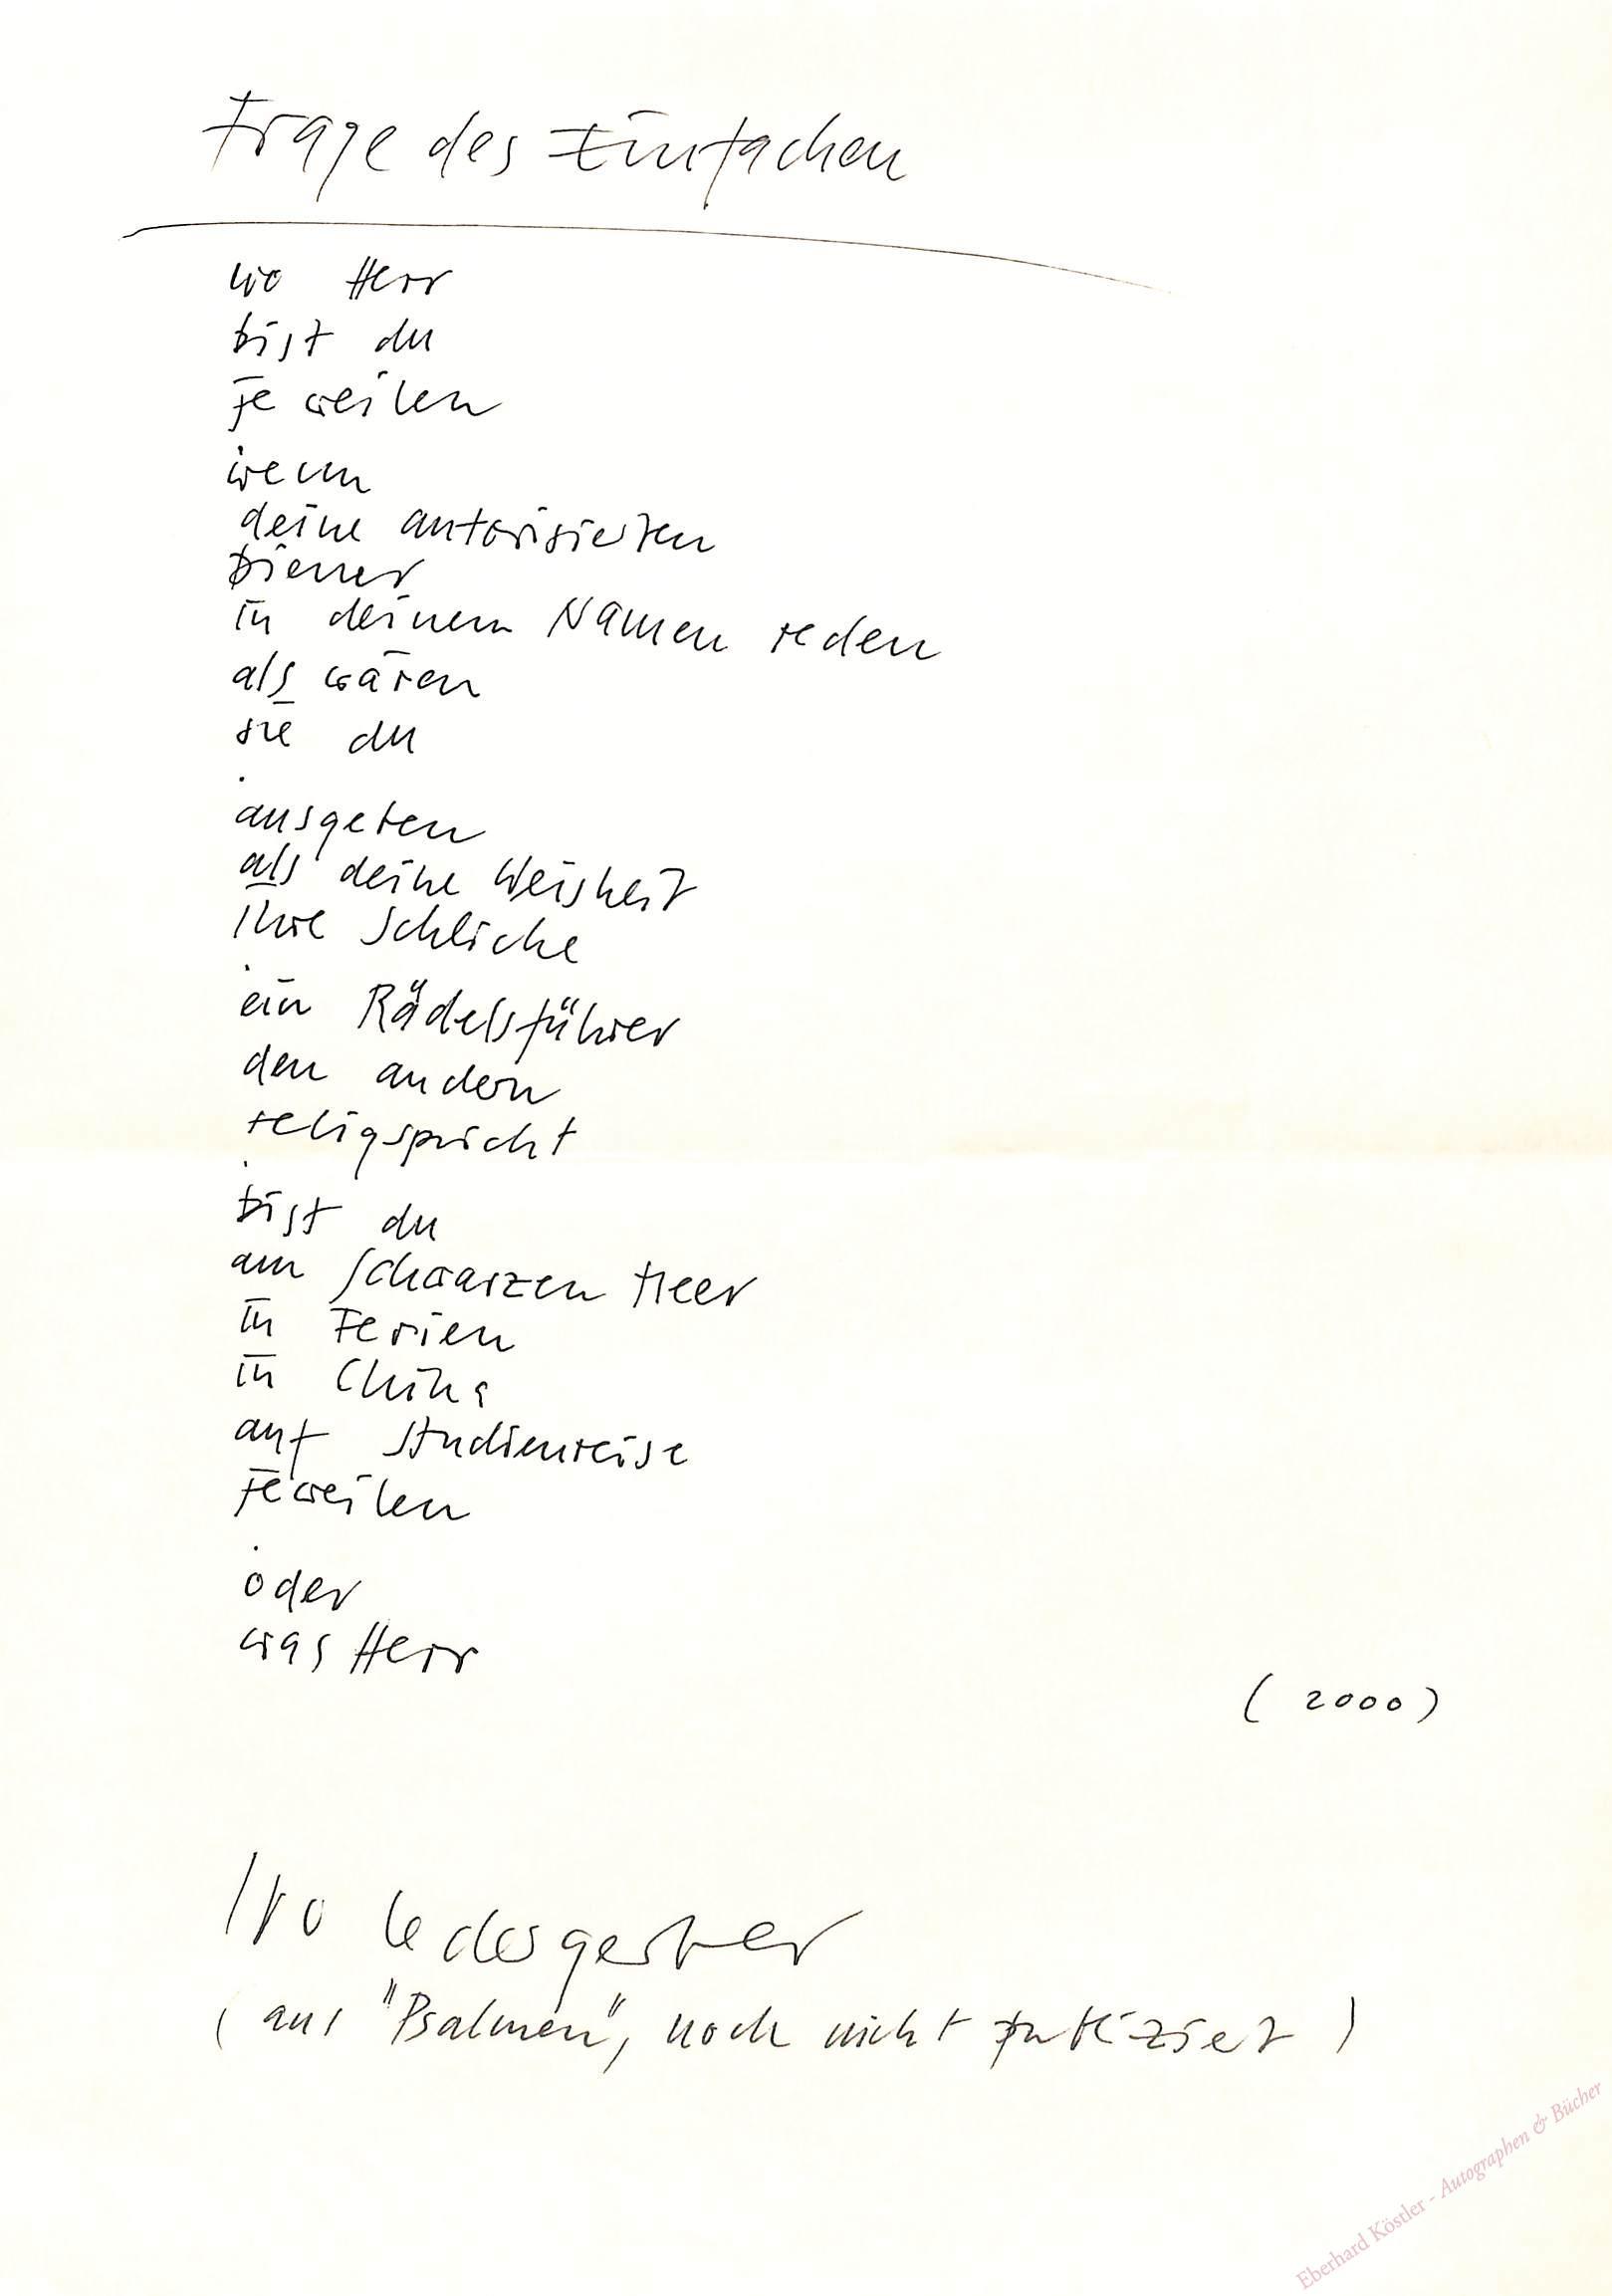 Frage des Einfachen
wo Herr
bist du
jeweilen
wenn
deine autorisierten
Diener
in deinem Namen reden
als wären
sie du
.
ausgeben
als deine Weisheit
ihre Schliche
.
ein Rädelsführer
den andern
seligspricht
.
bist du
am Schwarzen Meer
in Ferien
in China
auf Studienreise
jeweilen
.
oder
was Herr
(2000)
Ivo Ledergerber
(aus "Psalmen", noch nicht publiziert)
Eberhard Köstler - Autographen & Bücher